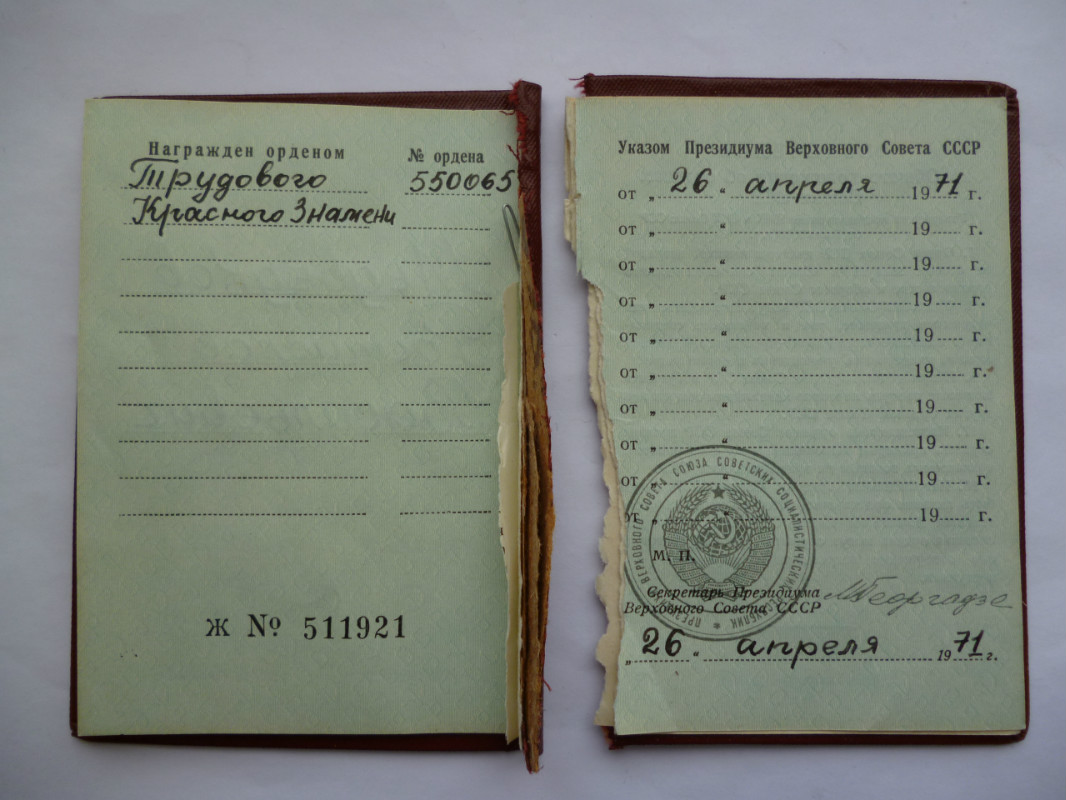 Награжден орденом № ордена
Трудового 550065
Красного Знамени
Ж № 511921
Указом Президиума Верховного Совета СССР
от „ 26 “ апреля 1971 г.
от „ “ 19 г.
от „ “ 19 г.
от „ “ 19 г.
от „ “ 19 г.
от „ “ 19 г.
от „ “ 19 г.
от „ “ 19 г.
от „ “ 19 г.
от „ “ 19 г.
ПРЕЗИДИУМ ВЕРХОВНОГО СОВЕТА СОЮЗА СОВЕТСКИХ СОЦИАЛИСТИЧЕСКИХ РЕСПУБЛИК
М. П.
Секретарь Президиума
Верховного Совета СССР М Георгадзе
„ 26 “ апреля 1971 г.